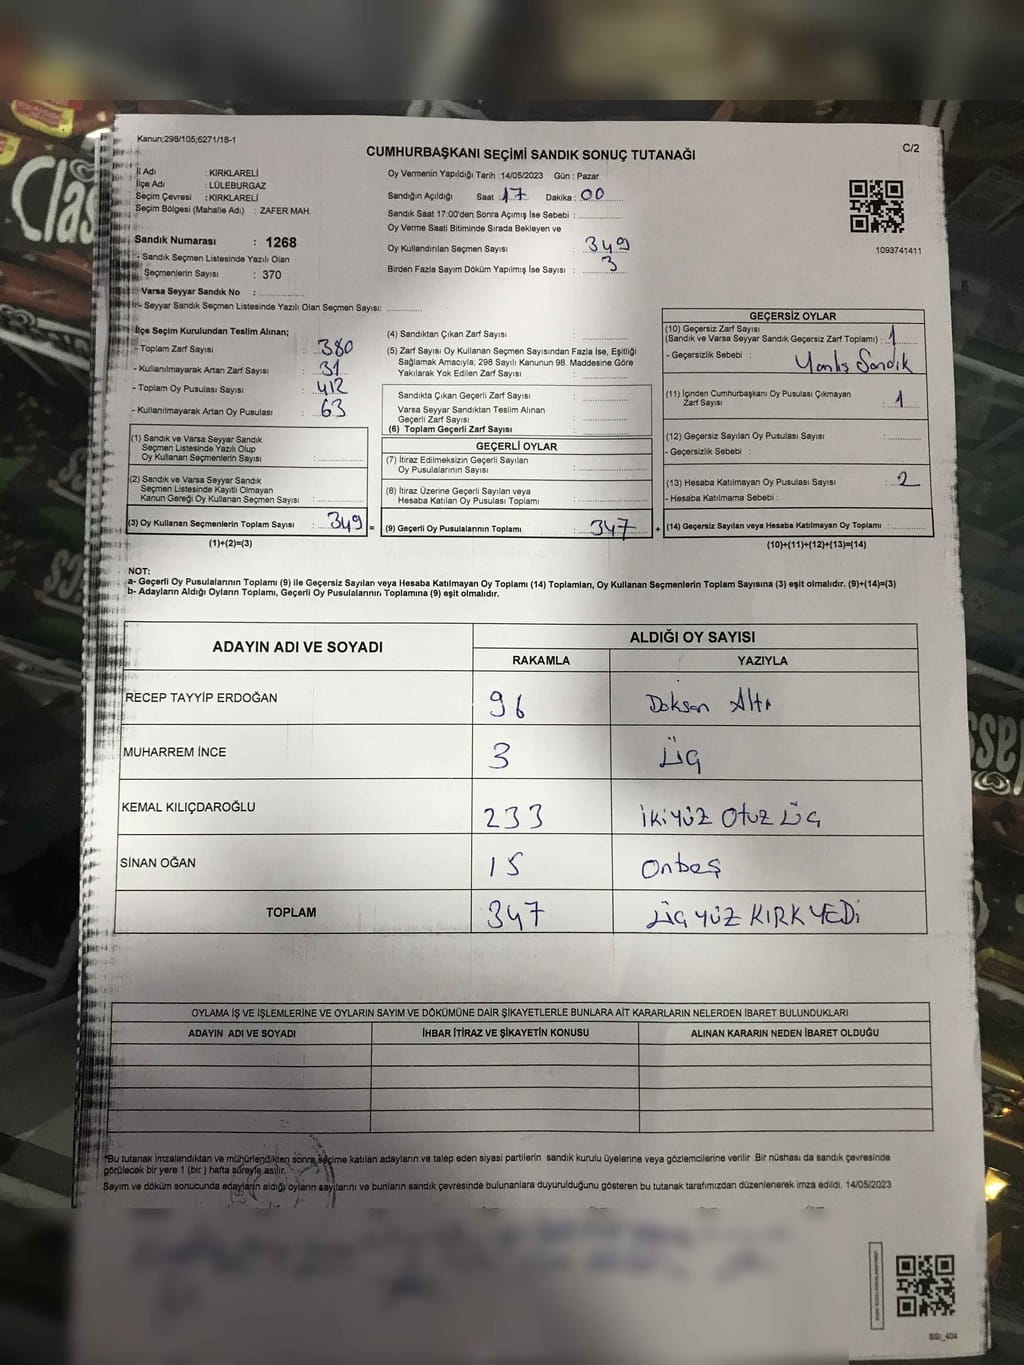 Kanun;298/105;6271/18-1
CUMHURBAŞKANI SEÇİMİ SANDIK SONUÇ TUTANAĞI
C/2
İl Adı : KIRKLARELİ
İlçe Adı : LÜLEBURGAZ
Seçim Çevresi : KIRKLARELİ
Seçim Bölgesi (Mahalle Adı) : ZAFER MAH.
Sandık Numarası : 1268
- Sandık Seçmen Listesinde Yazılı Olan
Seçmenlerin Sayısı : 370
Varsa Seyyar Sandık No :
- Seyyar Sandık Seçmen Listesinde Yazılı Olan Seçmen Sayısı:
Oy Vermenin Yapıldığı Tarih :14/05/2023 Gün : Pazar
Sandığın Açıldığı Saat 17 Dakika : 00
Sandık Saat 17:00'den Sonra Açımış İse Sebebi :
Oy Verme Saati Bitiminde Sırada Bekleyen ve
Oy Kullandırılan Seçmen Sayısı : 349
Birden Fazla Sayım Döküm Yapılmış İse Sayısı : 3
1093741411
İlçe Seçim Kurulundan Teslim Alınan;
- Toplam Zarf Sayısı : 380
- Kullanılmayarak Artan Zarf Sayısı : 31
- Toplam Oy Pusulası Sayısı : 412
- Kullanılmayarak Artan Oy Pusulası : 63
(1) Sandık ve Varsa Seyyar Sandık
Seçmen Listesinde Yazılı Olup
Oy Kullanan Seçmenlerin Sayısı :
(2) Sandık ve Varsa Seyyar Sandık
Seçmen Listesinde Kayıtlı Olmayan
Kanun Gereği Oy Kullanan Seçmen Sayısı :
(3) Oy Kullanan Seçmenlerin Toplam Sayısı : 349 =
(1)+(2)=(3)
(4) Sandıktan Çıkan Zarf Sayısı :
(5) Zarf Sayısı Oy Kullanan Seçmen Sayısından Fazla İse, Eşitliği
Sağlamak Amacıyla; 298 Sayılı Kanunun 98. Maddesine Göre
Yakılarak Yok Edilen Zarf Sayısı :
Sandıkta Çıkan Geçerli Zarf Sayısı :
Varsa Seyyar Sandıktan Teslim Alınan
Geçerli Zarf Sayısı :
(6) Toplam Geçerli Zarf Sayısı :
GEÇERLİ OYLAR
(7) İtiraz Edilmeksizin Geçerli Sayılan
Oy Pusulalarının Sayısı :
(8) İtiraz Üzerine Geçerli Sayılan veya
Hesaba Katılan Oy Pusulası Toplamı :
(9) Geçerli Oy Pusulalarının Toplamı : 347 +
GEÇERSİZ OYLAR
(10) Geçersiz Zarf Sayısı
(Sandık ve Varsa Seyyar Sandık Geçersiz Zarf Toplamı) : 1
- Geçersizlik Sebebi : Yanlış Sandık
(11) İçinden Cumhurbaşkanı Oy Pusulası Çıkmayan
Zarf Sayısı : 1
(12) Geçersiz Sayılan Oy Pusulası Sayısı :
- Geçersizlik Sebebi :
(13) Hesaba Katılmayan Oy Pusulası Sayısı : 2
- Hesaba Katılmama Sebebi :
(14) Geçersiz Sayılan veya Hesaba Katılmayan Oy Toplamı :
(10)+(11)+(12)+(13)=(14)
NOT:
a- Geçerli Oy Pusulalarının Toplamı (9) ile Geçersiz Sayılan veya Hesaba Katılmayan Oy Toplamı (14) Toplamları, Oy Kullanan Seçmenlerin Toplam Sayısına (3) eşit olmalıdır. (9)+(14)=(3)
b- Adayların Aldığı Oyların Toplamı, Geçerli Oy Pusulalarının Toplamına (9) eşit olmalıdır.
ADAYIN ADI VE SOYADI ALDIĞI OY SAYISI
RAKAMLA YAZIYLA
RECEP TAYYİP ERDOĞAN 96 Doksan Altı
MUHARREM İNCE 3 Üç
KEMAL KILIÇDAROĞLU 233 İkiyüz Otuz Üç
SİNAN OĞAN 15 Onbeş
TOPLAM 347 Üç YÜZ KIRK YEDİ
OYLAMA İŞ VE İŞLEMLERİNE VE OYLARIN SAYIM VE DÖKÜMÜNE DAİR ŞİKAYETLERLE BUNLARA AİT KARARLARIN NELERDEN İBARET BULUNDUKLARI
ADAYIN ADI VE SOYADI İHBAR İTİRAZ VE ŞİKAYETİN KONUSU ALINAN KARARIN NEDEN İBARET OLDUĞU
*Bu tutanak imzalandıktan ve mühürlendikten sonra seçime katılan adayların ve talep eden siyasi partilerin sandık kurulu üyelerine veya gözlemcilerine verilir .Bir nüshası da sandık çevresinde
görülecek bir yere 1 (bir ) hafta süreyle asılır.
Sayım ve döküm sonucunda adayların aldığı oyların sayılarını ve bunların sandık çevresinde bulunanlara duyurulduğunu gösteren bu tutanak tarafımızdan düzenlenerek imza edildi. 14/05/2023
Clas
sse